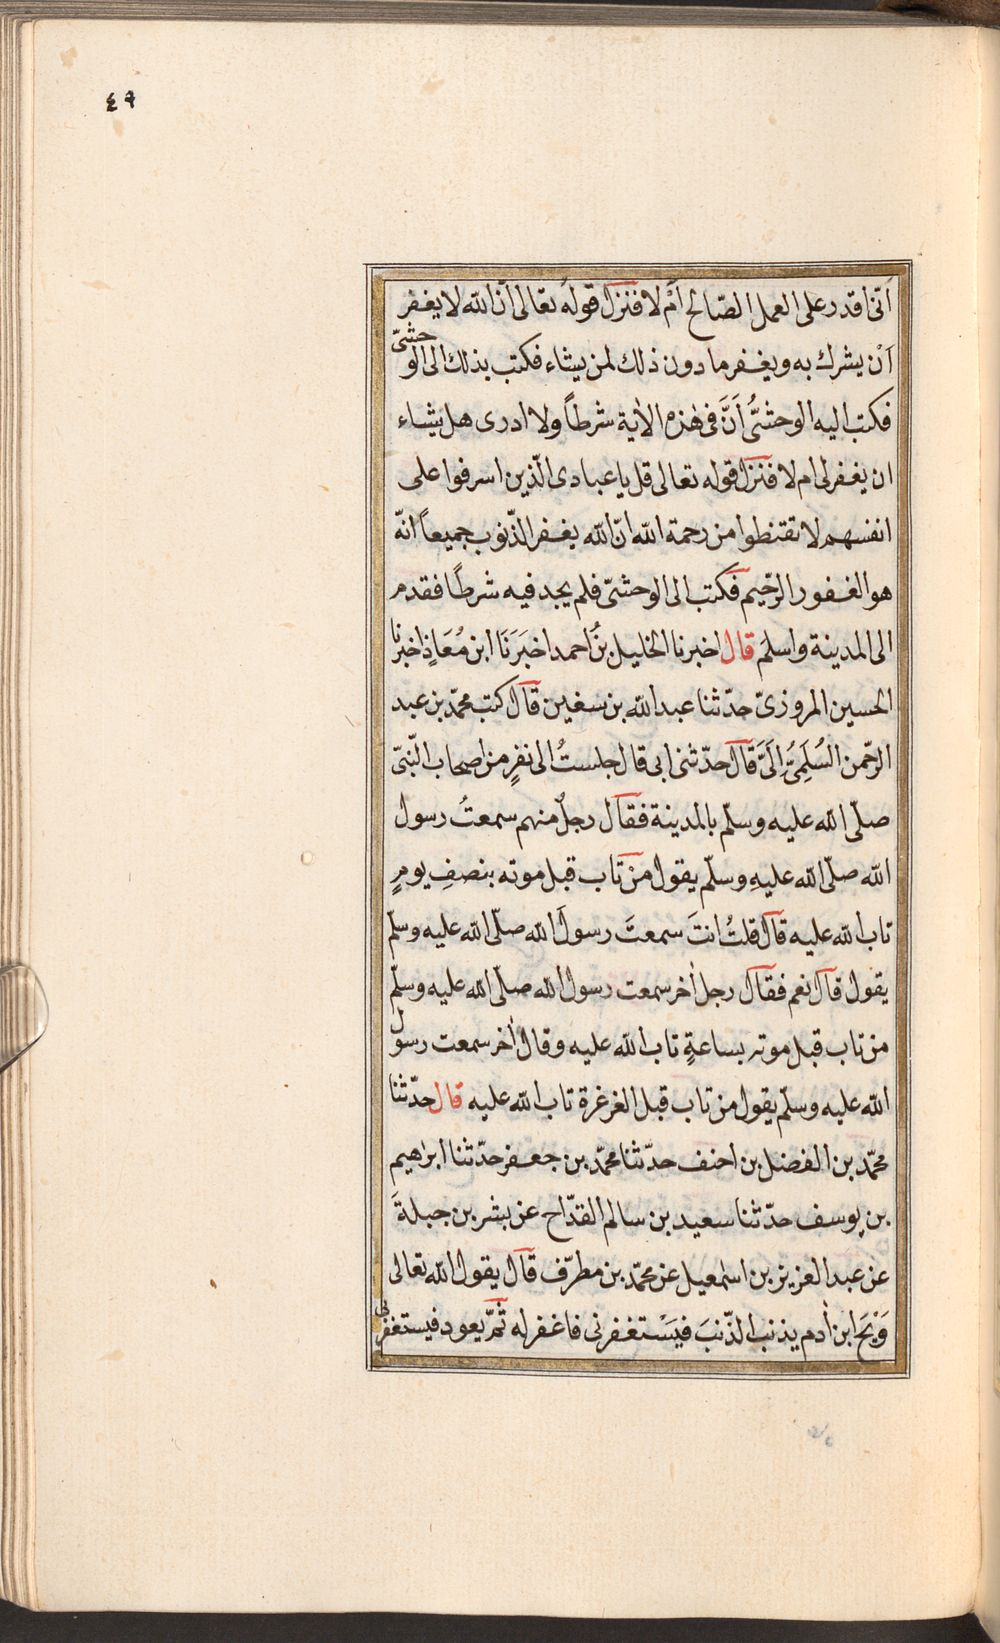 ٤٩
اَنّى اقدر على العمل الصّالح اَمْ لا فنزل قولهُ تعالى اَنّ الله لا يغفر
اَنْ يشرك به ويغفر ما دون ذلك لمن يشاء فكتب بذلك الى الوحشىّ
فكتب اليه الوحشىُّ اَنَّ فى هٰذه الاٰية شرطاً ولا ادرى هل يشاء
ان يغفر لى ام لا فنزل قوله تعالى قل يا عبادى الّذين اسرفوا على
انفسهم لا تقنطوا من رحمة الله انّ الله يغفر الذّنوب جميعاً انّه
هو الغفور الرّحيم فكتب الى الوحشىّ فلم يجد فيه شرطًا فقدم
الى المدينة واسلمَ قال اخبرنا الخليل بنُ احمد اخبَرَنَا ابن مُعَاذٍ اخبرنا
الحسين المروزىّ حدّثنا عبد الله بن سفين قال كتب محمّد بن عبد
الرّحمن السُلَمِىُّ اِلَىَّ قال حدّثنى ابى قال جلستُ الى نفرٍ من اصحاب النّبىّ
صلّى الله عليه وسلّم بالمدينة فقال رجلٌ منهم سمعتُ رسول
الله صلّى الله عليهِ وسلّم يقول منْ تاب قبل موته بنصفِ يومٍ
تاب الله عليه قال قلتُ انتَ سمعتَ رسولَ الله صلّى الله عليه وسلّم
يقول قال نعم فقال رجل اٰخر سمعت رسول الله صلّى الله عليه وسلّم
من تاب قبل موته بساعةٍ تاب الله عليه وقال اٰخر سمعت رسول
الله عليه وسلّم يقول من تاب قبل الغرغرة تاب الله عليه قال حدّثنا
محمّد بن الفضل بن احنف حدّثنا محمّد بن جعفر حدّثنا ابرٰهيم
بن يوسف حدّثنا سعيد بن سالم القدّاح عن بشر بن جبلةَ
عن عبد العزيز بن اسمٰعيل عن محمّد بن مطرّف قال يقول الله تعالى
وَيْحَ ابن اٰدم يذنب الذّنبَ فيَسْتغفرنى فاغفر له ثمّ يعود فيستغفرنى